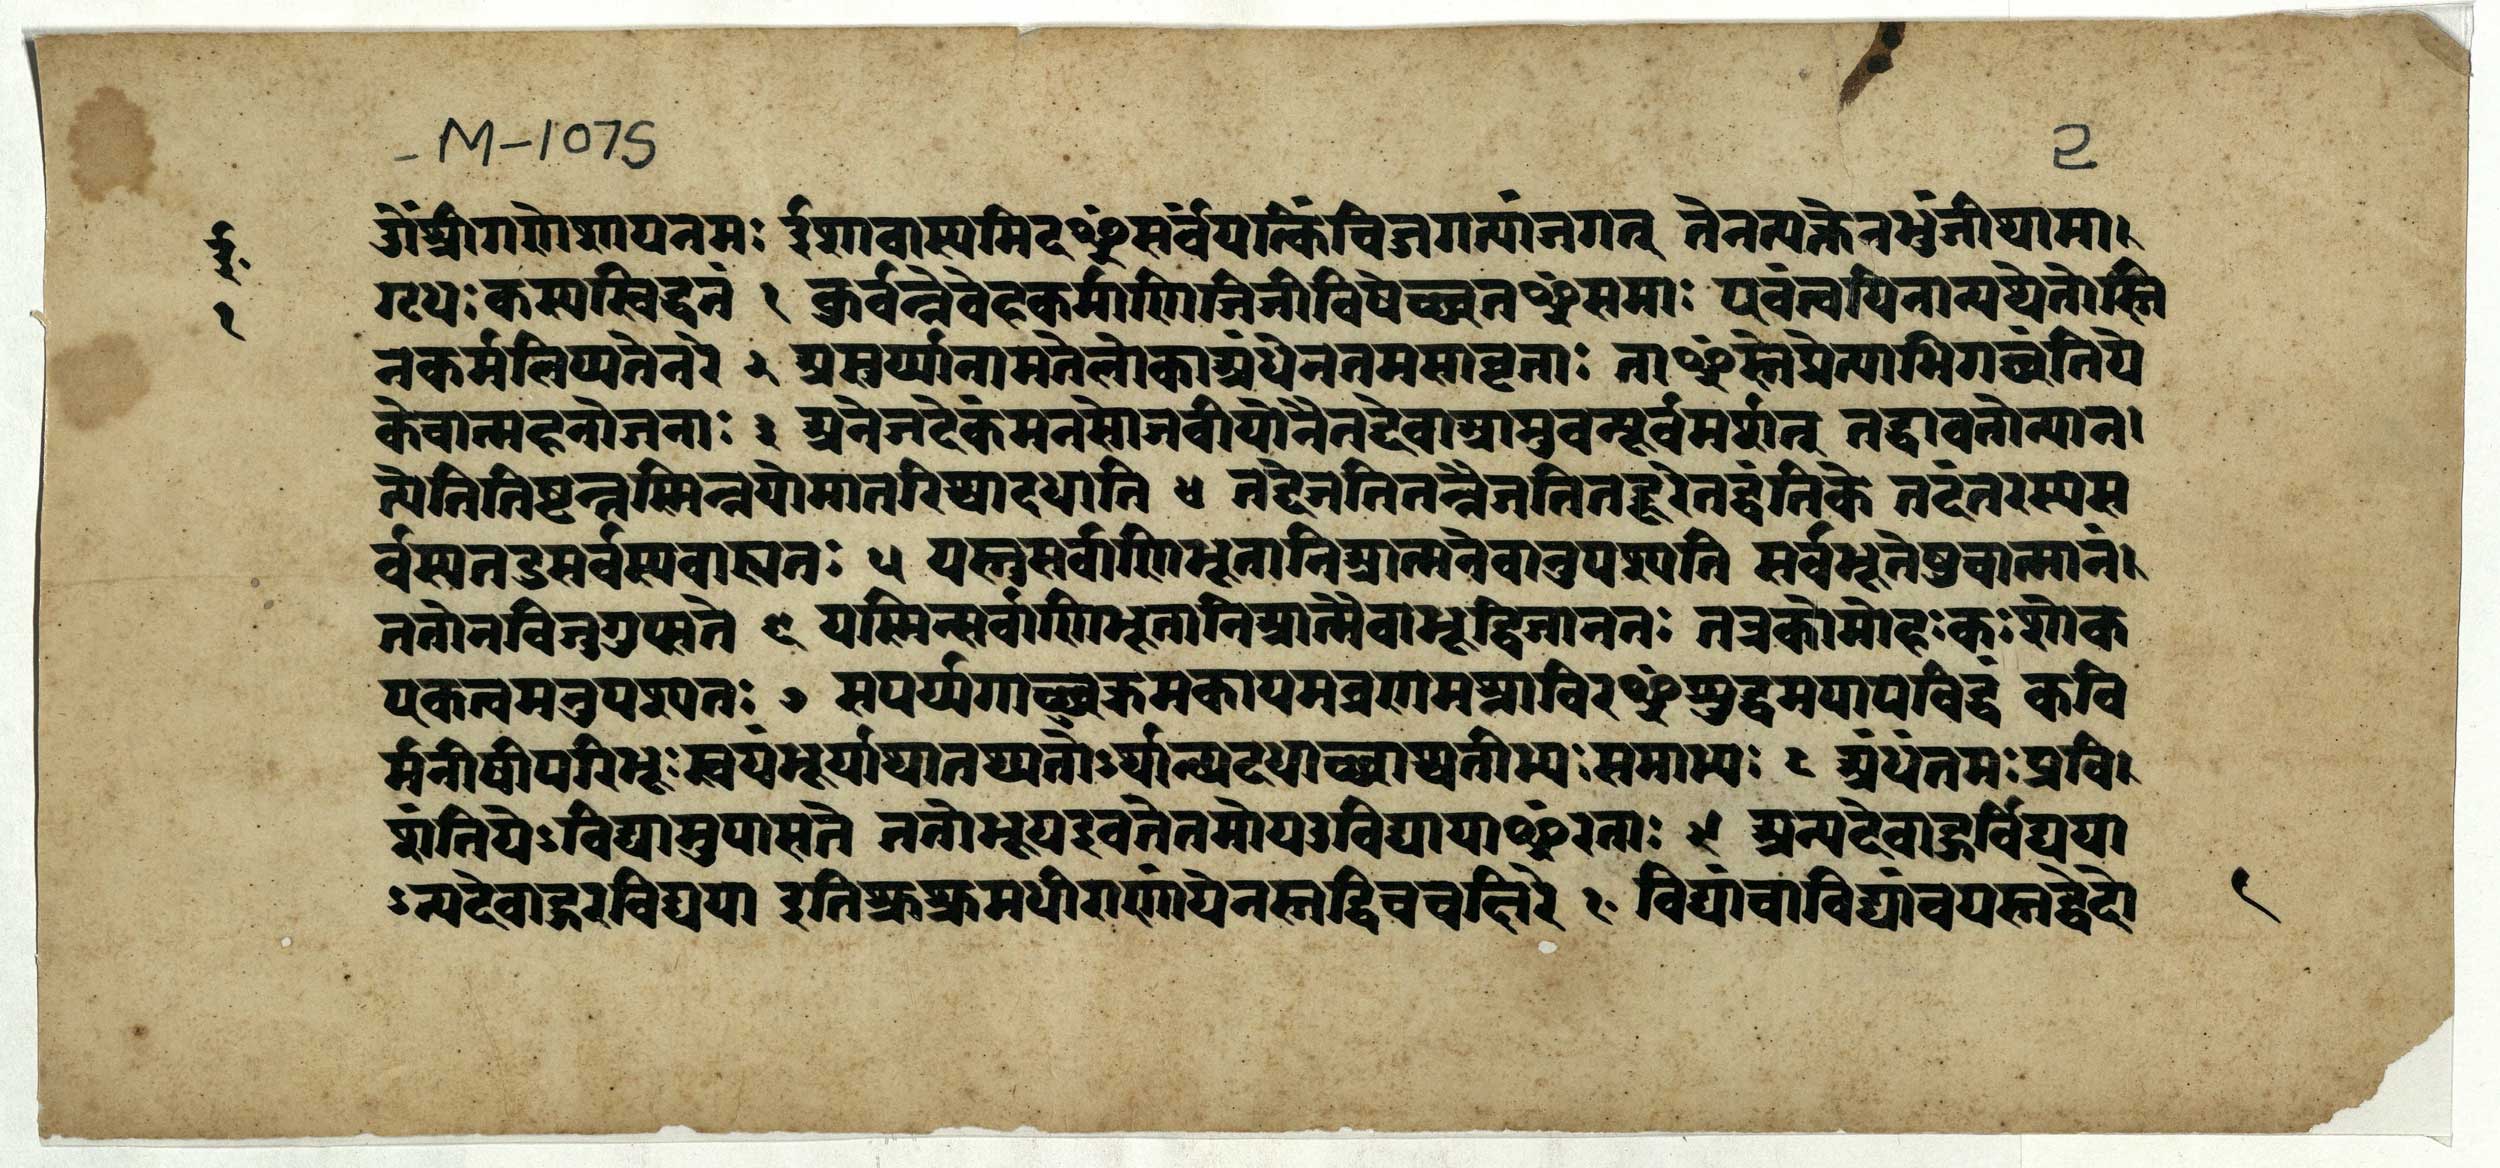 -M-1075
२
ई॰
१
ॐश्रीगणेशायनमः ईशावास्यमिदꣳसर्वंयत्किंचिजगत्यांजगत् तेनत्यक्तेनभुंजीथामा।
गृधःकस्यस्विद्धनं १ कुर्वन्नेवेहकर्माणिजिजीविषेच्छतꣳसमाः एवंत्वयिनान्यथेतोस्ति
नकर्मलिप्यतेनरे २ असुर्य्यानामतेलोकाअंधेनतमसावृताः ताꣳस्तेप्रेत्याभिगच्छंतिये
केचात्महनोजनाः ३ अनेजदेकंमनसोजवीयोनैनद्देवाआप्नुवन्पूर्वमर्शत् तद्धावतोन्यान।
त्येतितिष्टत्तस्मिन्नपोमातरिश्वादधाति ४ तदेजतितन्नैजतितद्दूरेतद्वंतिके तदंतरस्यस
र्वस्यतदुसर्वस्यबाह्यतः ५ यस्तुसर्वाणिभूतानिआत्मनेवानुपश्यति सर्वभूतेषुचात्मानं।
ततोनविजुगुप्सते ६ यस्मिन्सर्वाणिभूतानिआत्मैवाभूद्विजानतः तत्रकोमोहःकःशोक
एकत्वमनुपश्यतः ७ सपर्य्यगाच्छुक्रमकायमव्रणमस्नाविरꣳशुद्धमपापविद्धं कवि
र्मनीषीपरिभूःस्वयंभूर्याथातथ्यतोऽर्थान्व्यदधाच्छाश्वतीभ्यःसमाभ्यः ८ अंधंतमःप्रवि।
शंतियेऽविद्यामुपासते ततोभूयइवतेतमोयउविद्यायाꣳरताः ९ अन्यदेवाहुर्विद्यया
ऽन्यदेवाहुरविद्यया इतिशुश्रुमधीराणांयेनस्तद्विचचक्षिरे १॰ विद्यांचाविद्यांचयस्तद्वेदो
१